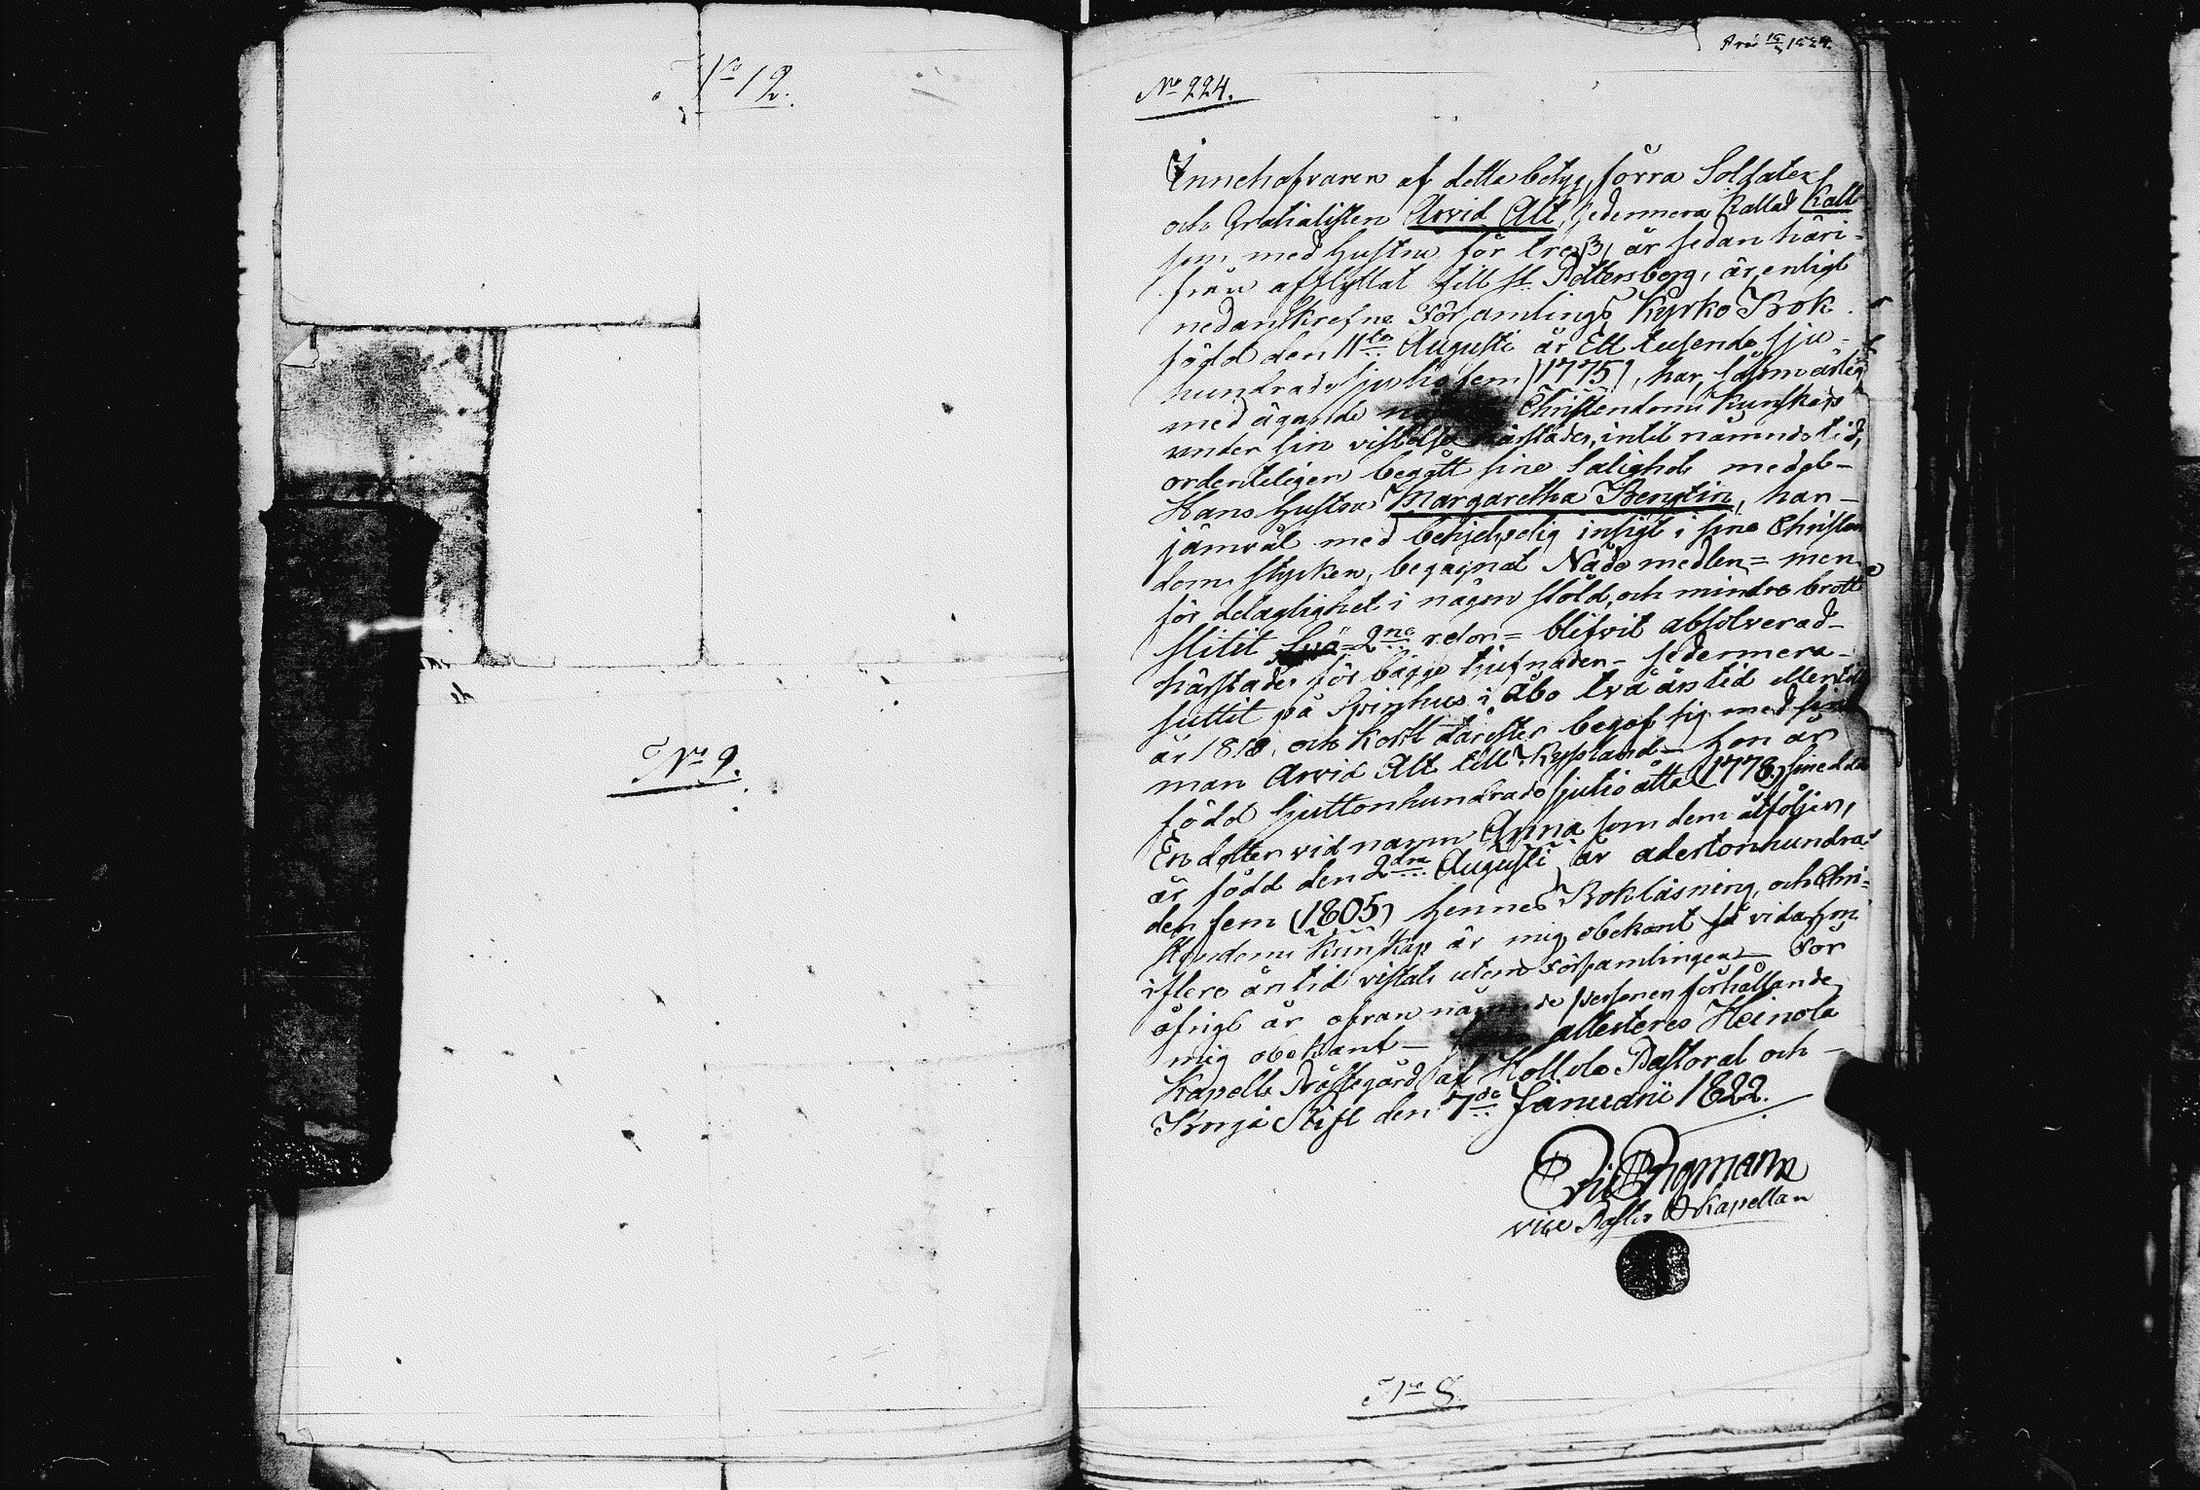 No 12.
No 9.
de
No 224.
Innehafvaren af detta betyg, förra Soldaten
och Gratialisten Arvid Alt, sedermera kallad Kall
som med hustru för tre /3/ år sedan häri-
från afflyttat till St. Pettersborg, är, enligt
nedanskrefne Församlings Kyrko Bok
född den 11te Augusti år Ett tusende sju-
hundrade sjutio fem /1775/, har,
med ägande Christendoms kunskap
under sin vistelse härstädes, intil nämnde tid,
ordenteligen begått sine Salighets medel-
Hans hustru Margaretha Bengtin, har-
jämväl med behjelpelig insigt i sine Christen
doms stycken, begagnat Nåde medlen = men
för delaglighet i någon stöld, och mindre brott
slitit 2ne = blifvit absolverad-
härstädes för bägge tjufnaden - sedermera -
suttit på Spinhus i Åbo två års tid
år 1818, och kort därefter begaf sig med sin
man Arvid Alt till Ryssland - hon är
född sjuttonhundrade sjutio åtta (1778)
En dotter vid namn Anna som dem åtföljer,
är född den 2dra Augusti år adertonhundra-
den fem (1805) hennes Bokläsning, och Chri-
stendoms kunskap är mig obekant så vida hon
i flere års tid vistats utom Församlingen - För
öfrigt är ofvannämnde personers förhållande
mig obekant - attesteres Heinola
Kapells Prästegård af Hollola Pastorat och -
Borgå Stift den 7de Januarii 1822.
Engmann
vice Pastor & Kapellan
No 8.